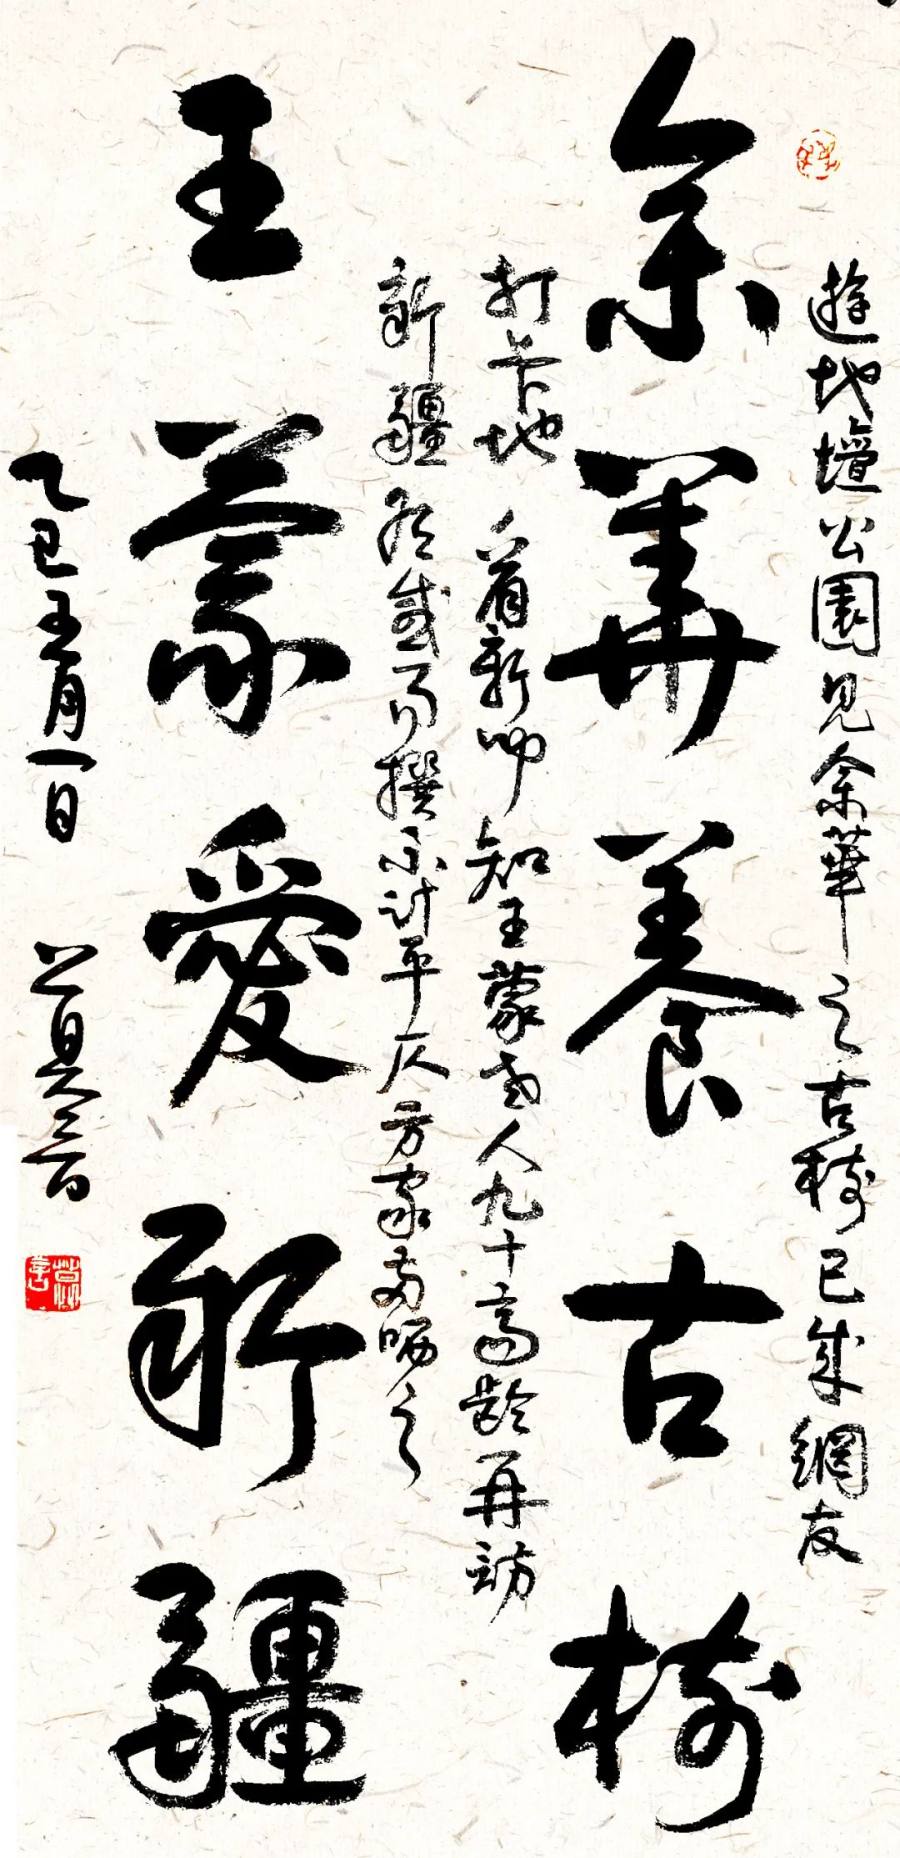 遊地壇公園見余華之古樹已成網友
余華養古樹
打卡地 看新聞知王蒙老人九十高齡再訪
新疆有感而撰不計平仄方家哂之
王蒙愛新疆
乙巳五月一日